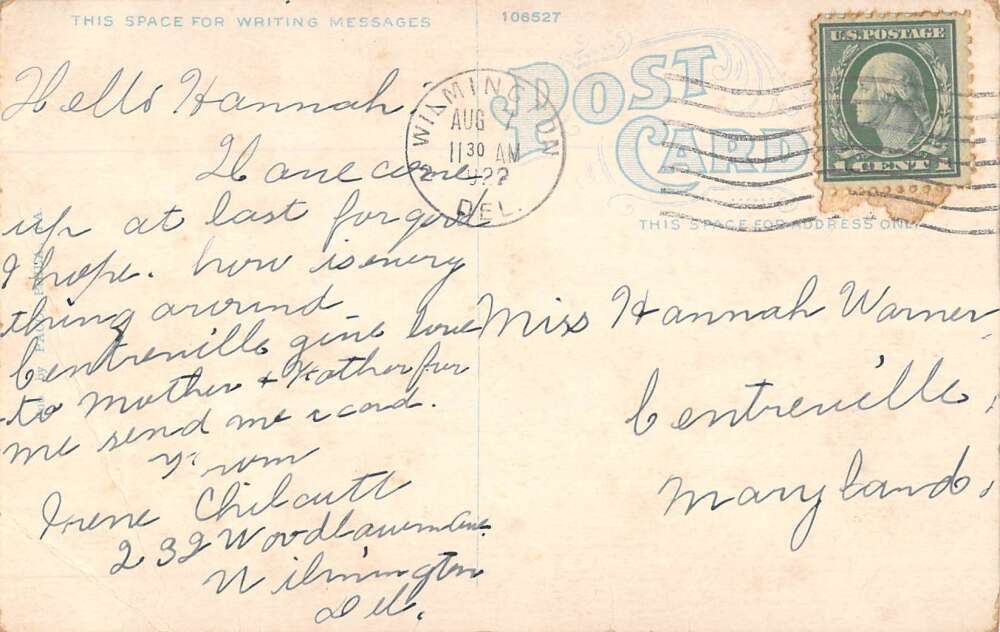 THIS SPACE FOR WRITING MESSAGES
106527
POST CARD
THIS SPACE FOR ADDRESS ONLY
U.S. POSTAGE
1 CENT 1
WILMINGTON
AUG
11 30 AM
1922
DEL.
Hello Hannah
Have come
up at last for good
I hope. how is every
thing around
Centreville give love
to Mother + Father for
me send me a card.
From
Irene Chilcutt
232 Woodlawn Ave.
Wilmington
Del.
Miss Hannah Warner,
Centreville,
Maryland.